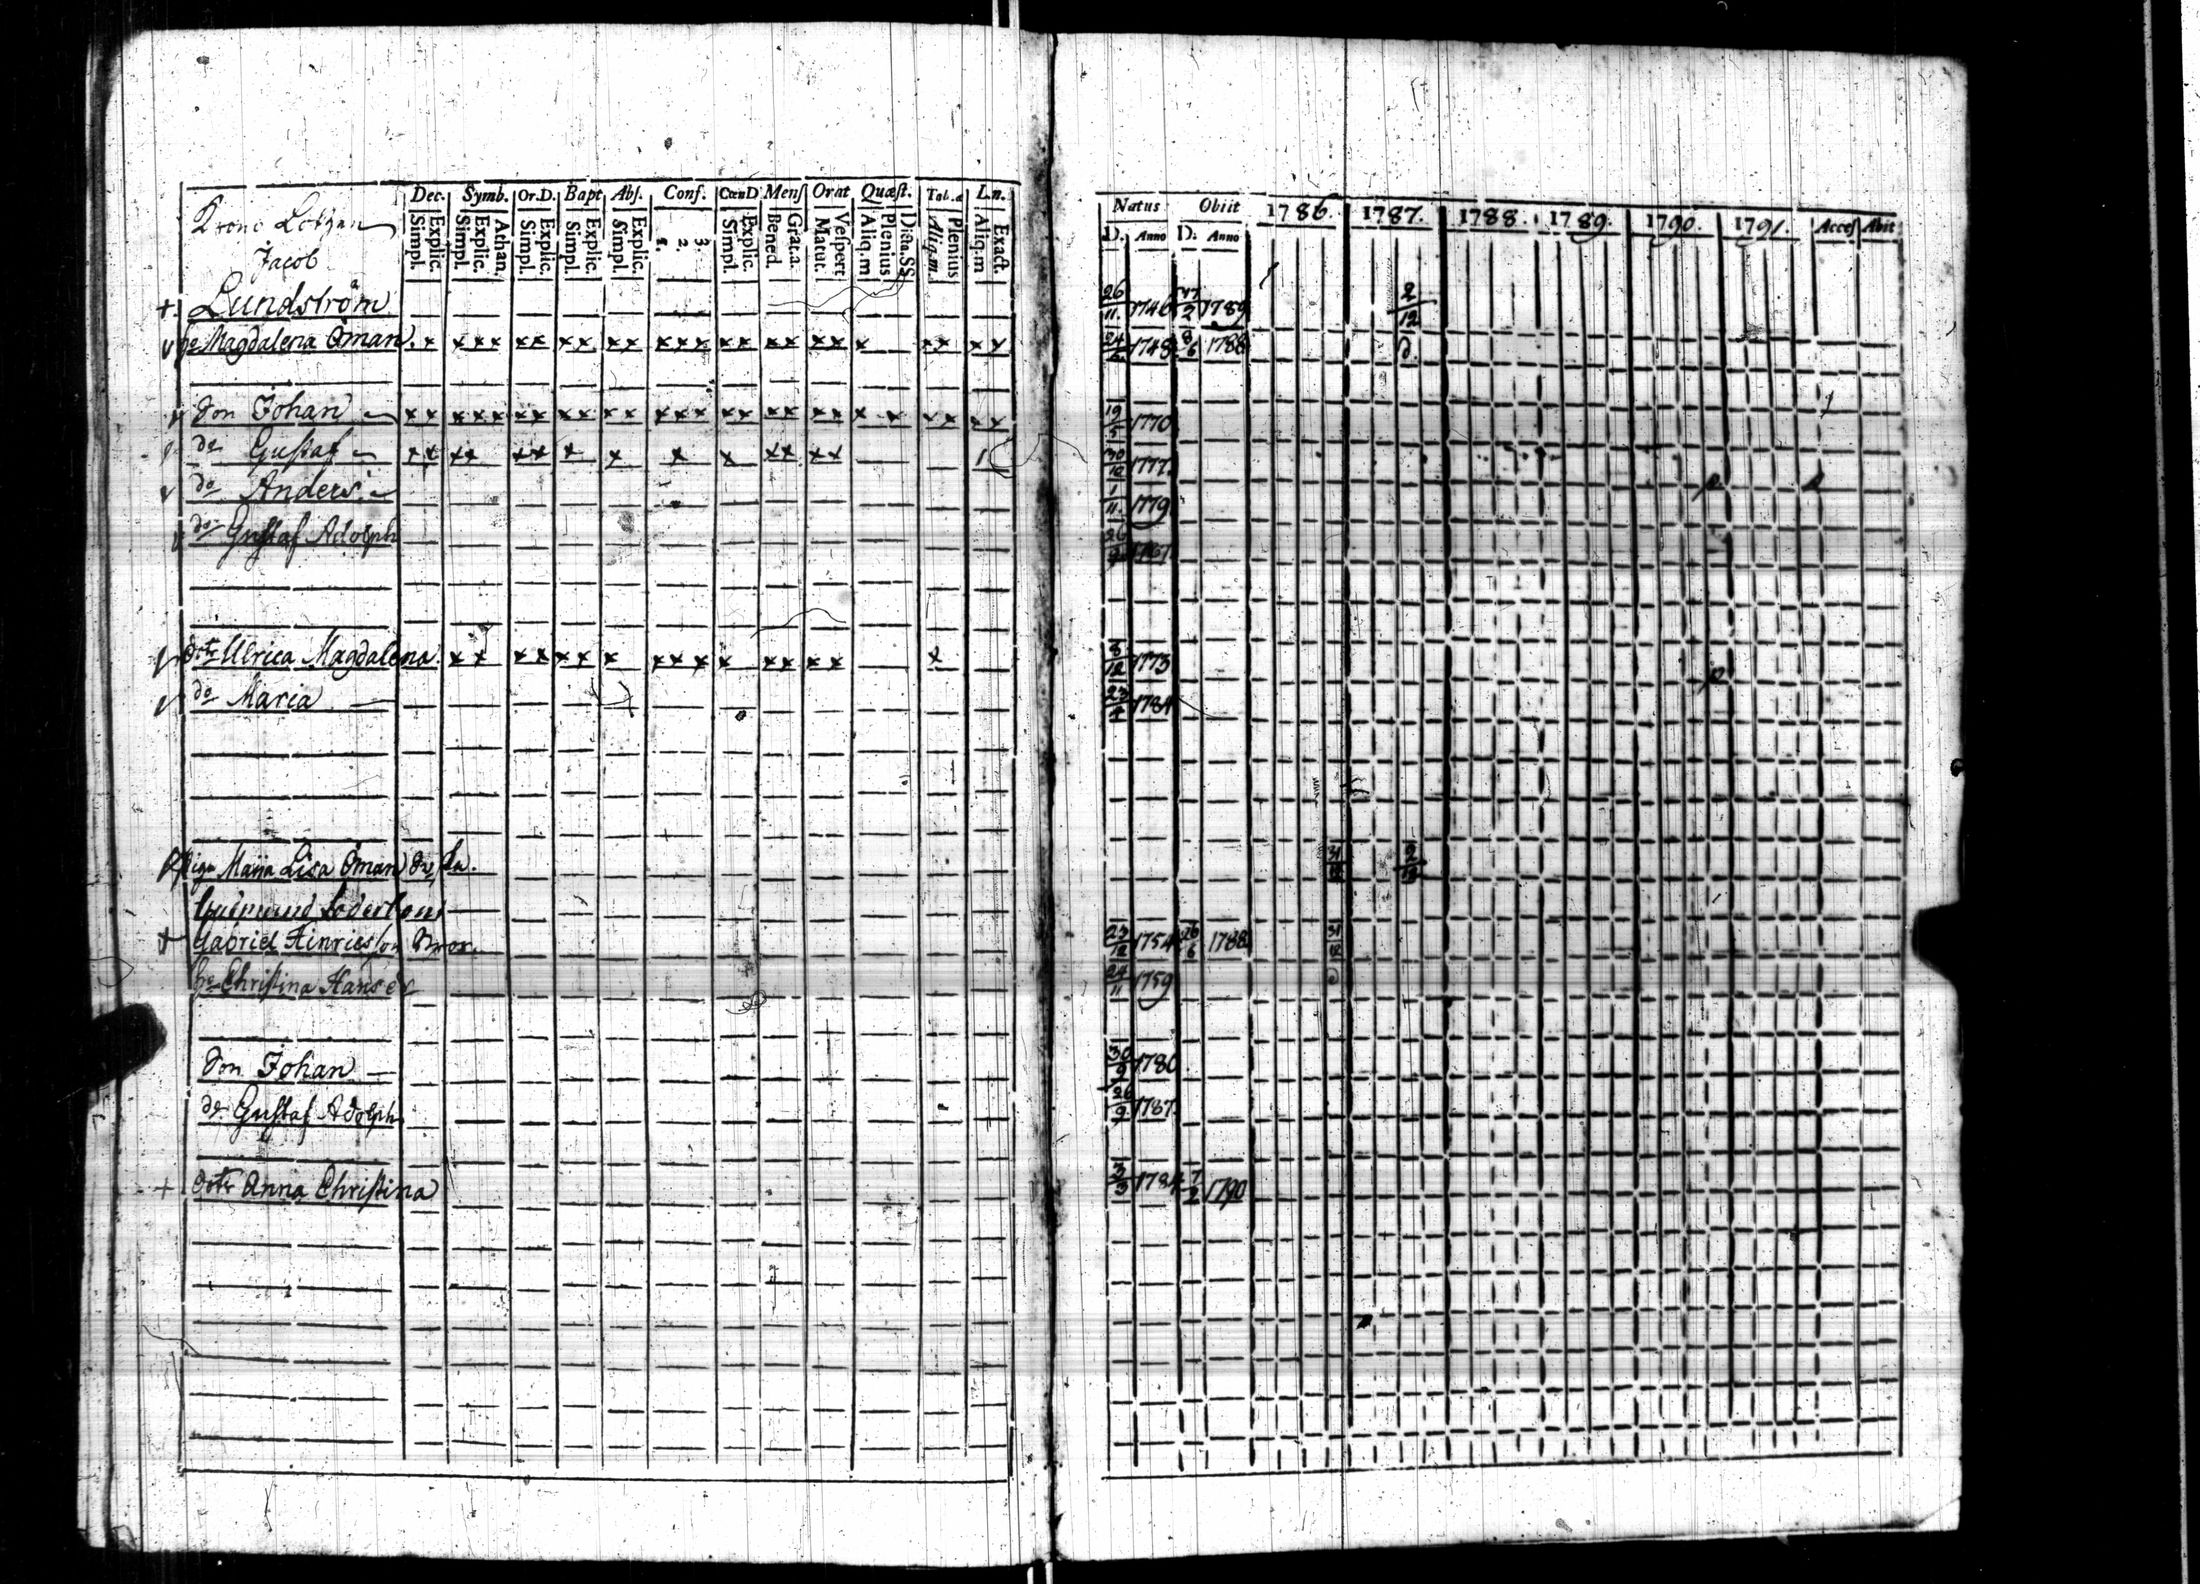 Dec. Symb. Or.D. Bapt Abs. Conf. CœnD Mens Orat Quæst. Tab. Ln.
Simpl. Explic. Simpl. Explic. Athan. Simpl. Explic. Simpl. Explic. Simpl. Explic. 1. 2. 3. Simpl. Explic. Bened. Grat.a. Matut. Vespert Aliq.m Plenius Dicta.SS. Aliq.m. Plenius Aliq.m Exact.
Natus Obiit 1786. 1787. 1788. 1789. 1790. 1791. Acces Abit
D. Anno D. Anno
Jacob
+ Lundström 26/11 1746 1789 2/12
v h:o Magdalena Öman x xxx xx xx xx xxx xx xx xx x xx xx 24/2 1748 8/6 1788 d.
Son Johan xx xxx xx xx xx xxx xx xx xx x x xx xx 19/5 1770
d:o Gustaf xx xx xx x x x x xx xx 30/12 1777.
v d:o Anders 1/11 1779
v d:o Gustaf Adolph 26/9
dotr Ulrica Magdalena xx xx xx x xxx x xx xx x 8/12 1773
d:o Maria 23/4 1784
Piga Maria Lisa Öman 31/12 2/12
+ Gabriel Hinricsson 23/12 1754 1788 31/12
h:o Christina Hansdr 24/11 1759 d
Son Johan 30/9 1780
d:o Gustaf Adolph 26/9 1787.
+ dotr Anna Christina 3/3 1784 7/2 1790